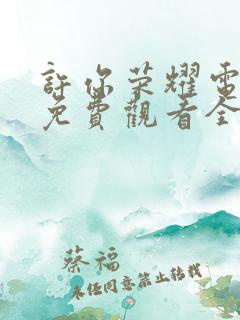 許你荣耀電
免費觀看全
蔡福
未任同意禁止转载